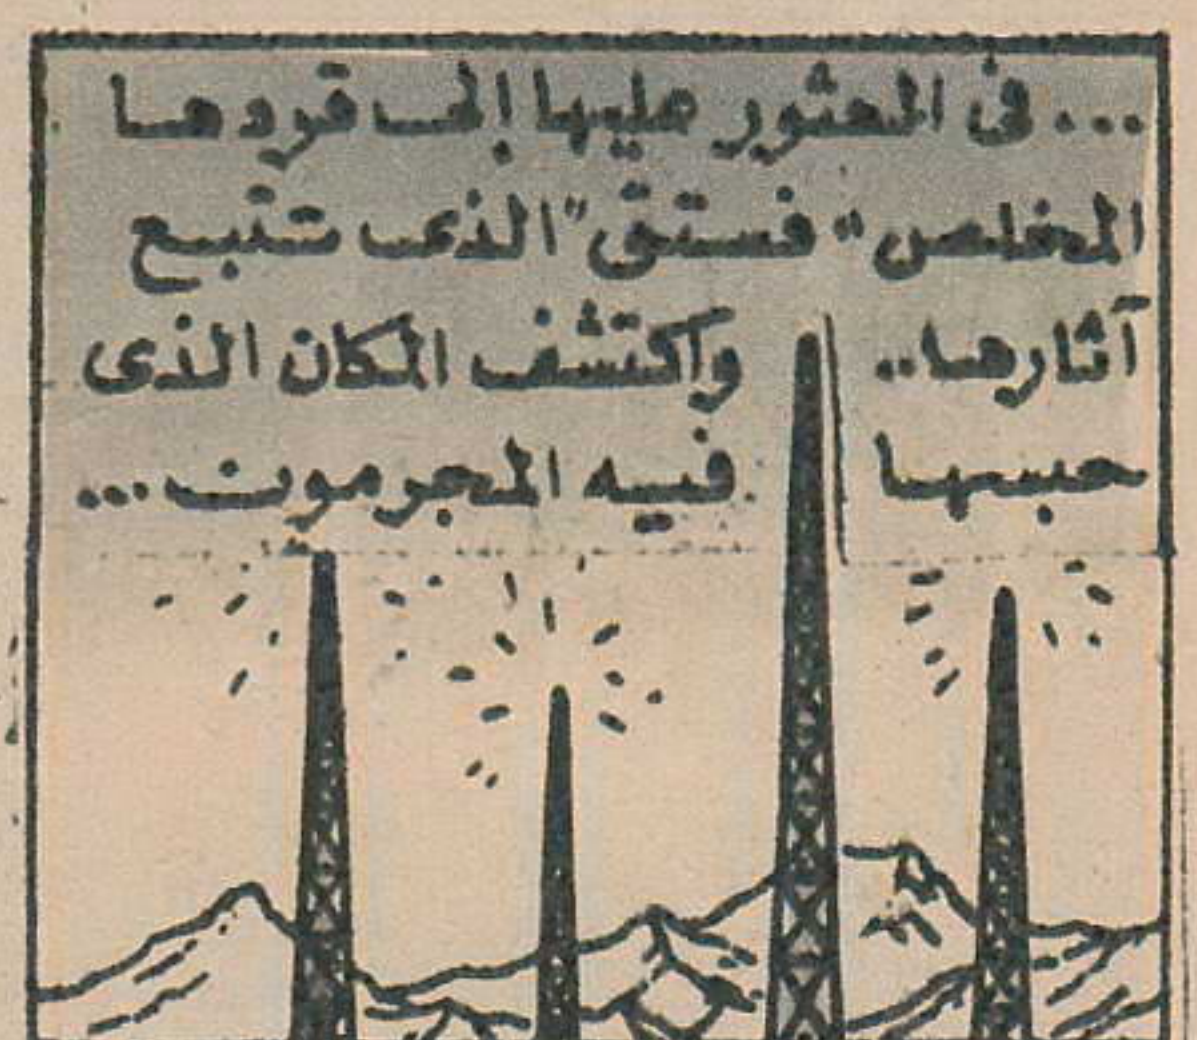 ... فى العثور عليها إلى قردها
المخلص "فستق" الذى تتبع
آثارها.. واكتشف المكان الذى
حبسها فيه المجرمون...